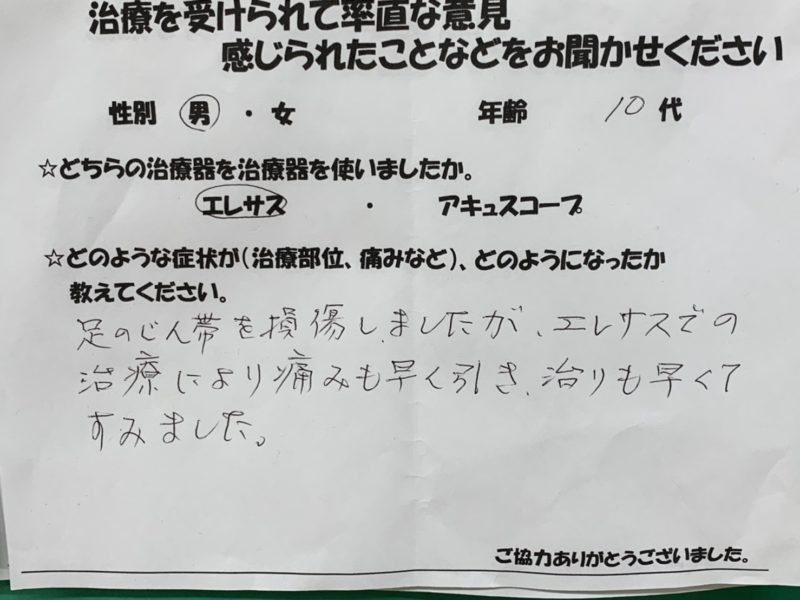 治療を受けられて率直な意見
感じられたことなどをお聞かせください
性別 男 ・ 女 年齢 10 代
☆どちらの治療器を治療器を使いましたか。
エレサス ・ アキュスコープ
☆どのような症状が(治療部位、痛みなど)、どのようになったか
教えてください。
足のじん帯を損傷しましたが、エレサスでの
治療により痛みも早く引き、治りも早くて
すみました。
ご協力ありがとうございました。